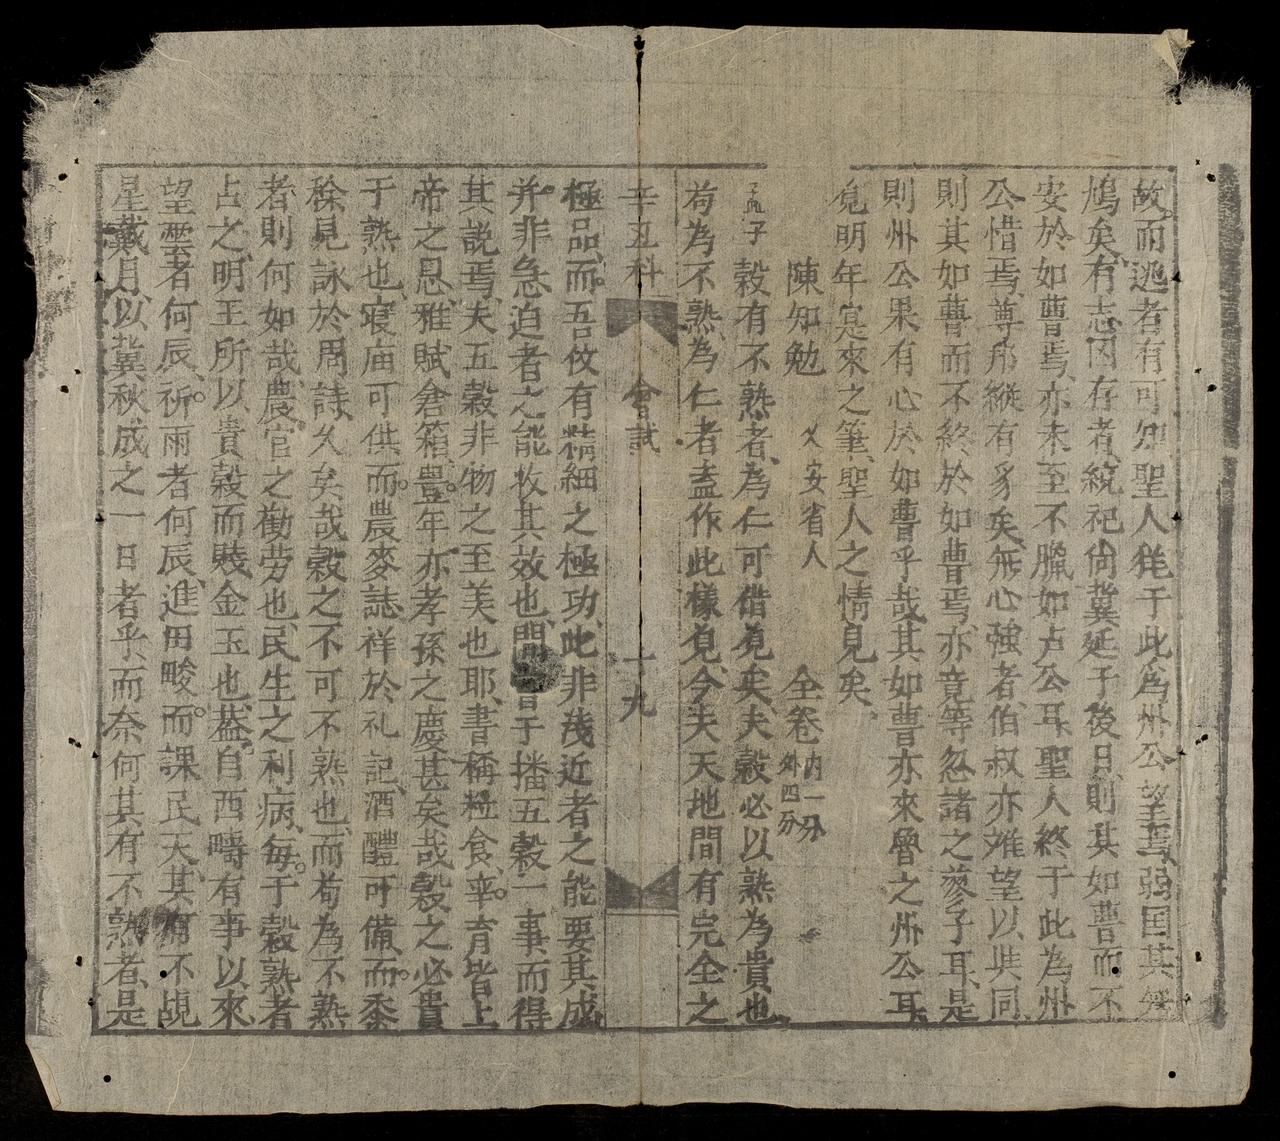 故而逃者有可知聖人從于此為州公望焉強国其無
鳩矣有志図存者統祀尙冀延于後日則其如曹而不
安於如曹焉亦未至不臘如卢公耳聖人終于此為州
公惜焉尊那縱有矣無心強者伯叔亦难望以共同
則其如曹而不終於如曹焉亦竟等忽諸之蓼子耳是
則州公果有心於如曹乎哉其如曹亦來魯之州公耳
覓明年寔來之筆聖人之情見矣
陳知勉 久安省人 全卷 内一分 外四分
孟子 穀有不熟者為仁可借見矣夫穀必以熟為貴也
荀為不熟為仁者盍作此樣見今夫天地間有完全之
辛丑科 會試 十九
極品而吾攸有精細之極功此非浅近者之能要其成
并非急迫者之能收其效也間嘗于播五穀一事而得
其説焉夫五穀非物之至美也耶書稱粒食率育皆上
帝之恩雅賦倉箱豊年亦孝孫之慶甚矣哉穀之必貴
于熟也寝庙可供而農麥誌祥於礼記酒醴可備而黍
稌見詠於周詩久矣哉穀之不可不熟也而荀為不熟
者則何如哉農官之勸劳也民生之利病每于穀熟者
占之明王所以貴穀而賤金玉也葢自西疇有事以來
望雲者何辰祈雨者何辰進田畯而課民天其有不覩
星戴月以冀秋成之一日者乎而奈何其有不熟者是